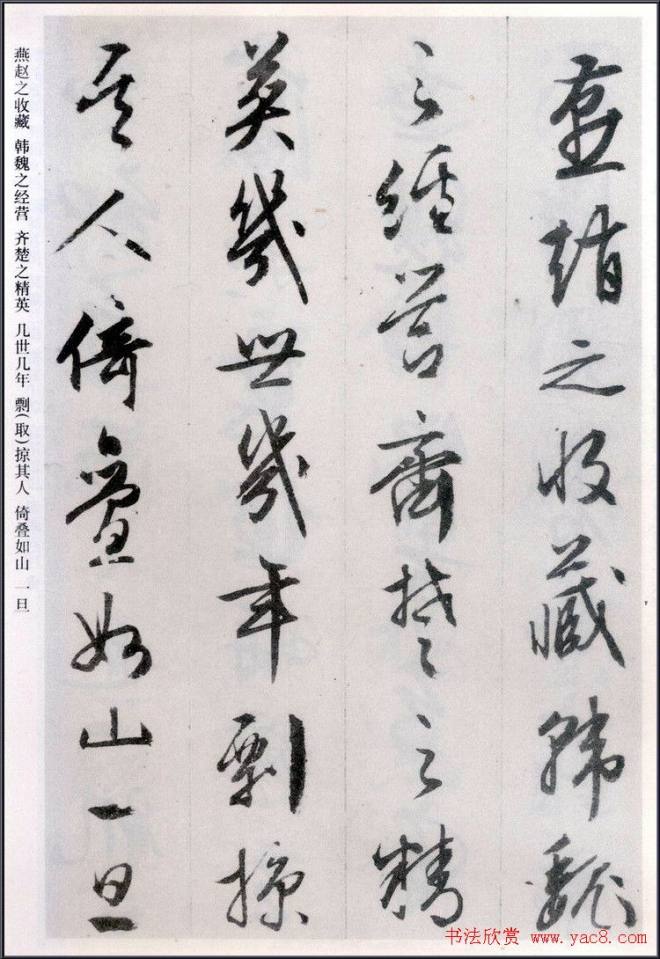 燕趙之收藏韓魏
之經營齊楚之精
英幾世幾年剽掠
其人倚疊如山一旦
燕赵之收藏 韩魏之经营 齐楚之精英 几世几年 剽(取)掠其人 倚叠如山 一旦
书法欣赏 www.yac8.com